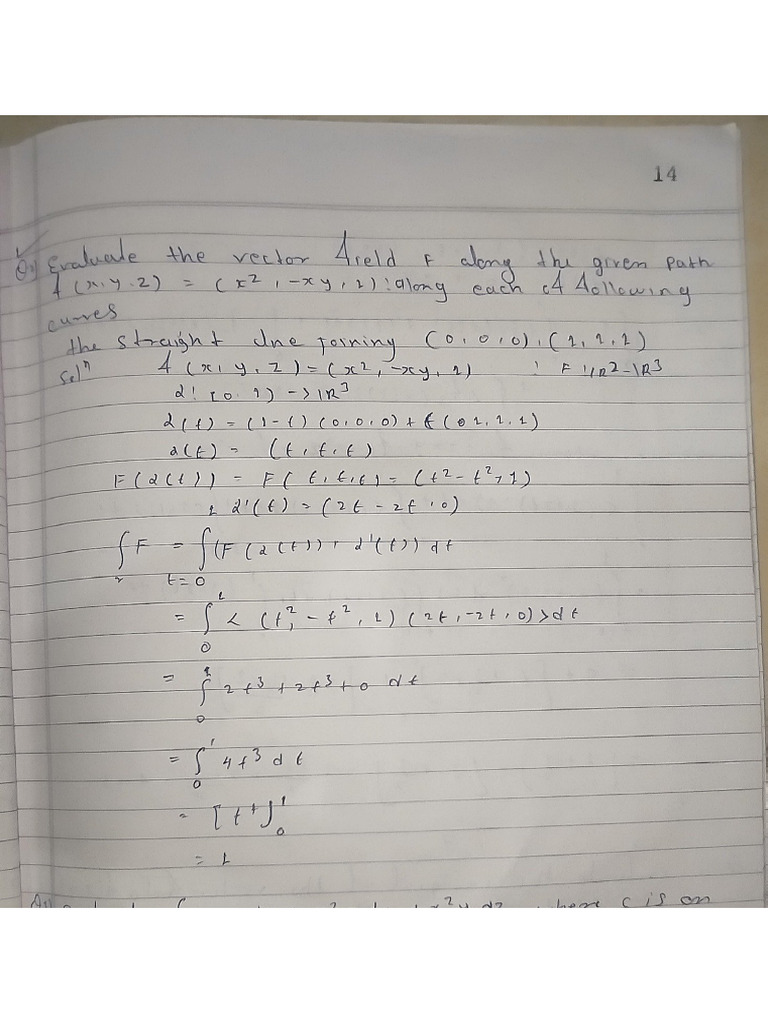 14
Q1) Evaluate the vector field F along the given path
f(x,y.z) = (x², -xy, 1) : along each of following
curves
the straight line joining (0,0,0), (1,1,1)
Solⁿ f(x, y, z) = (x², -xy, 1) ; F : IR² - IR³
α : [0. 1) -> IR³
α(t) = (1-t) (0,0,0) + t (0 1, 1, 1)
α(t) = (t, t, t)
F(α(t)) = F(t, t, t) = (t² - t², 1)
α'(t) = (2t - 2t, 0)
∫ F = ∫ (F(α(t)) + α'(t)) dt
t=0
= ∫₀¹ < (t², - t², 1) (2t, -2t, 0) > dt
= ∫₀¹ 2t³ + 2t³ + 0 dt
= ∫₀¹ 4t³ dt
= [t⁴]₀¹
= 1
c is on